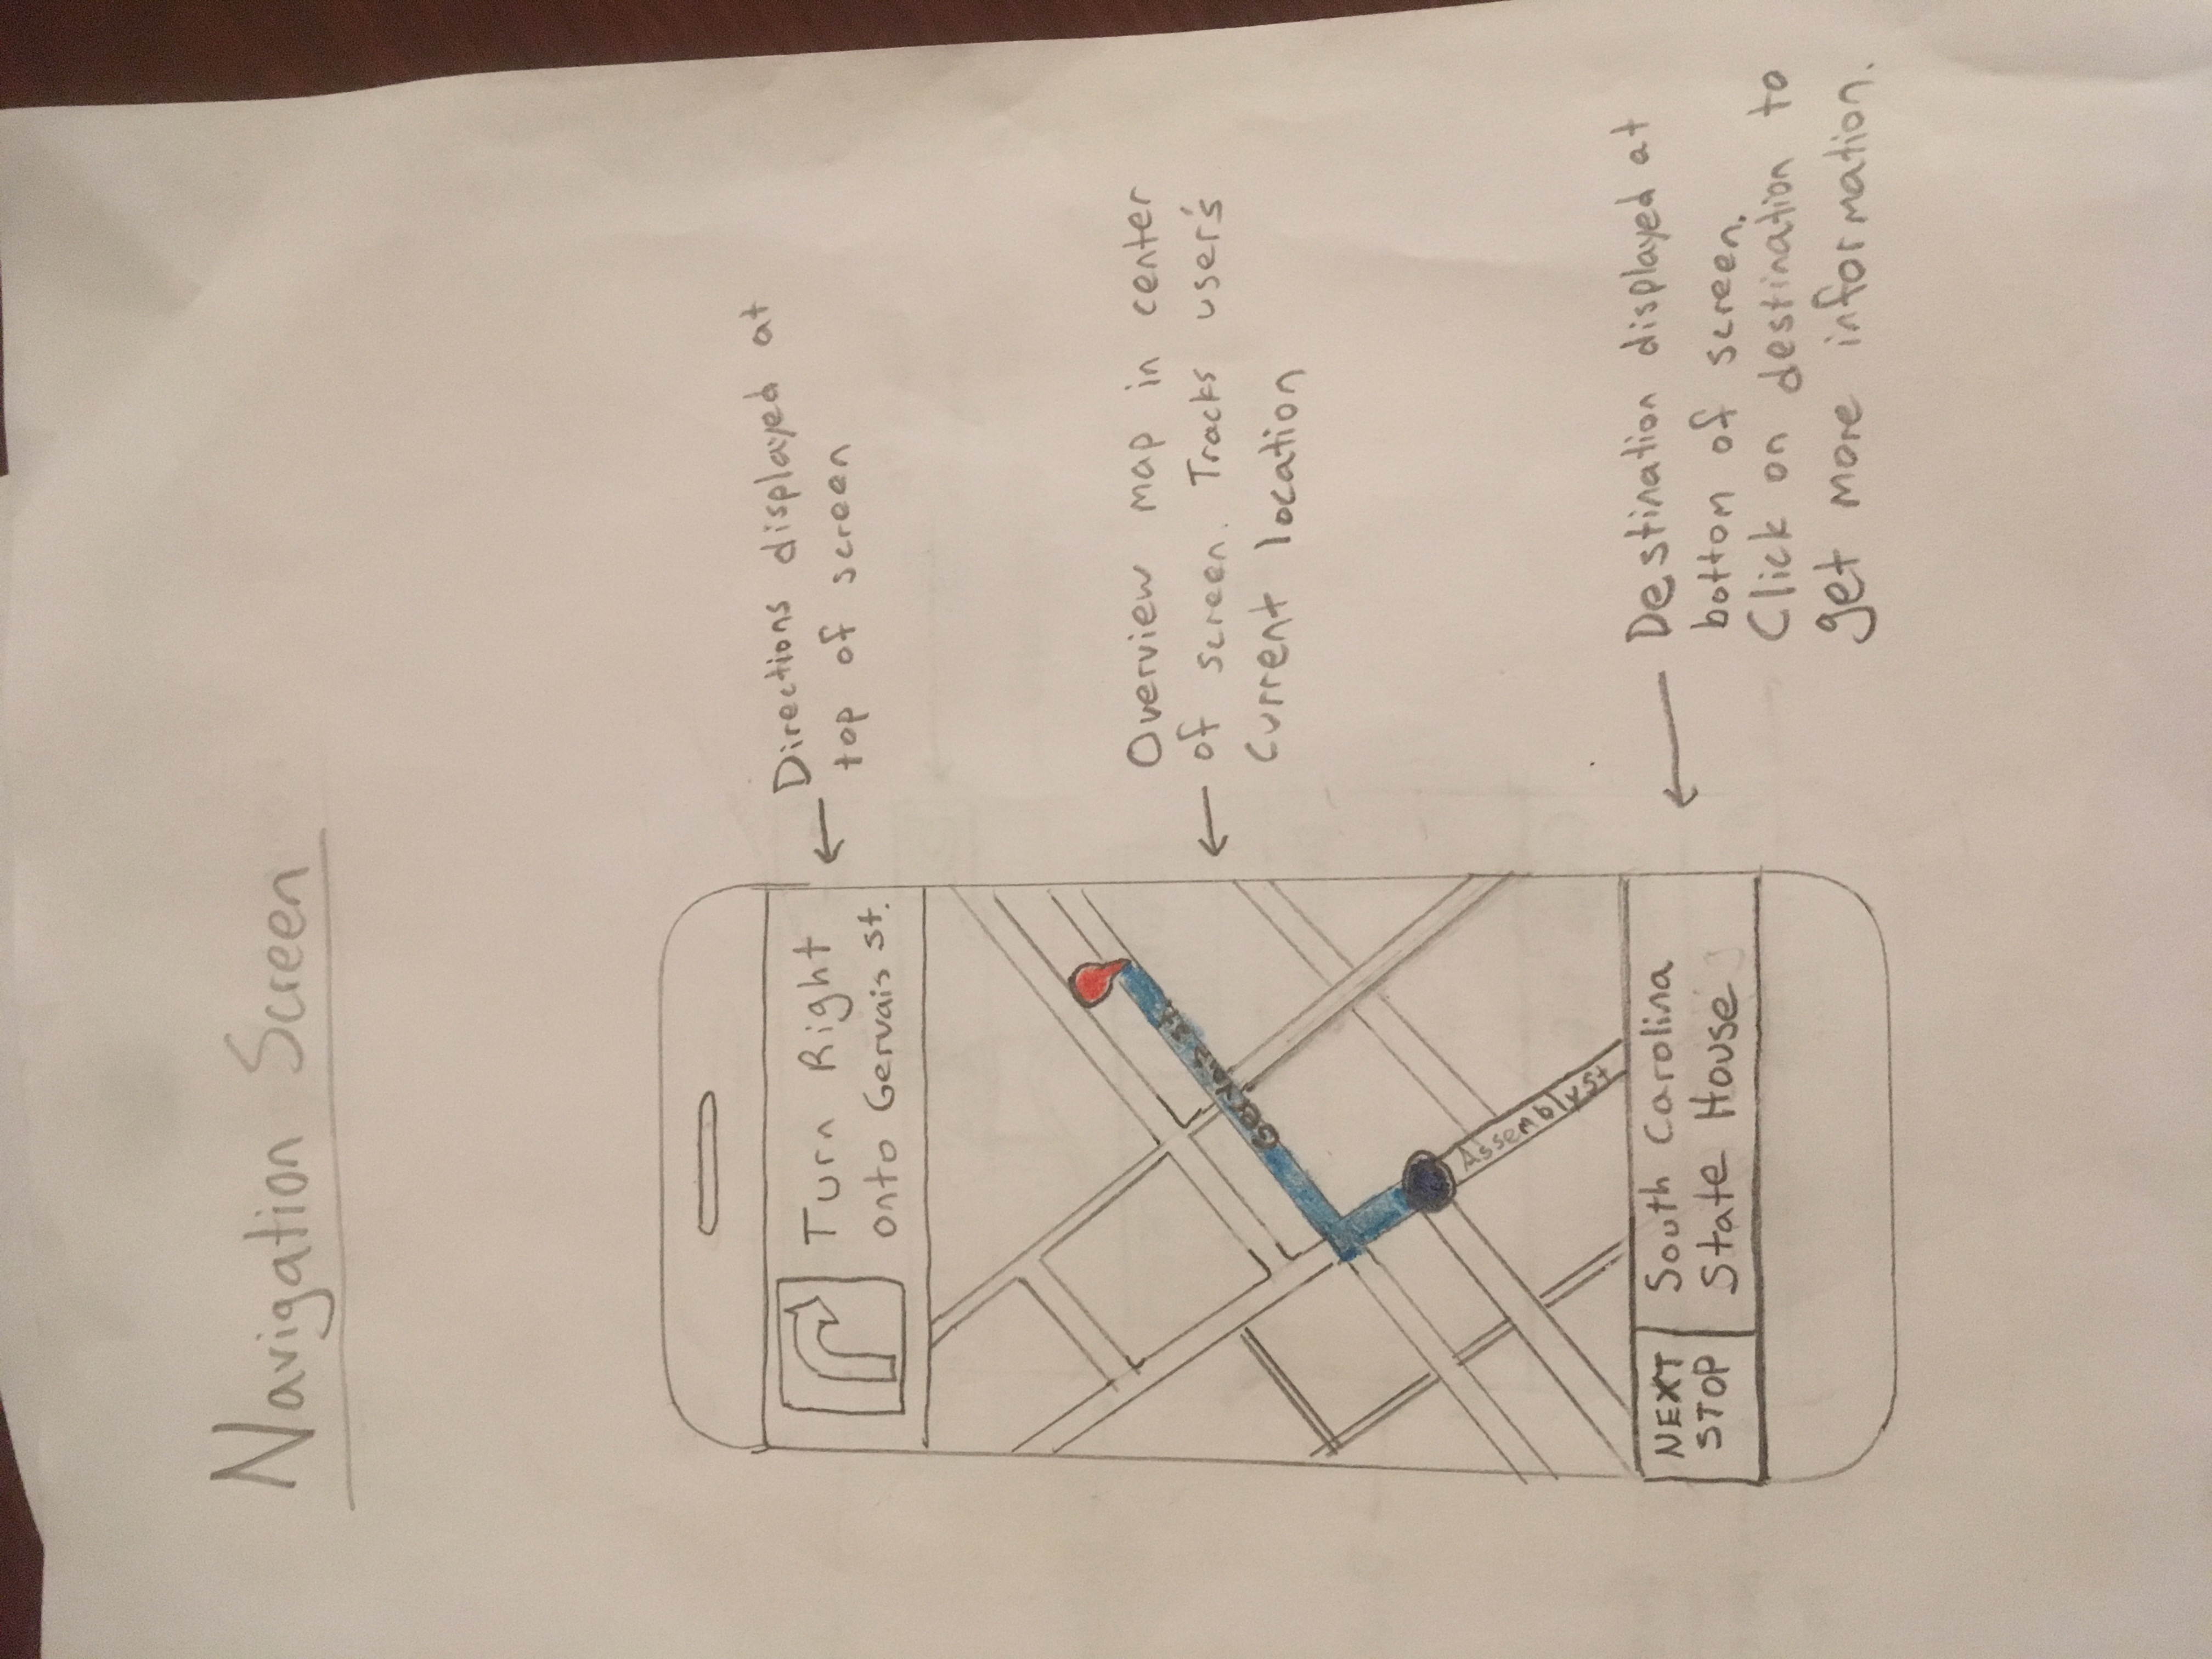 Navigation Screen
Turn Right
onto Gervais st.
Directions displayed at
top of screen
Gervais st.
Overview map in center
of screen. Tracks user's
current location
Assembly st
NEXT
STOP
South Carolina
State House
Destination displayed at
bottom of screen.
Click on destination to
get more information.